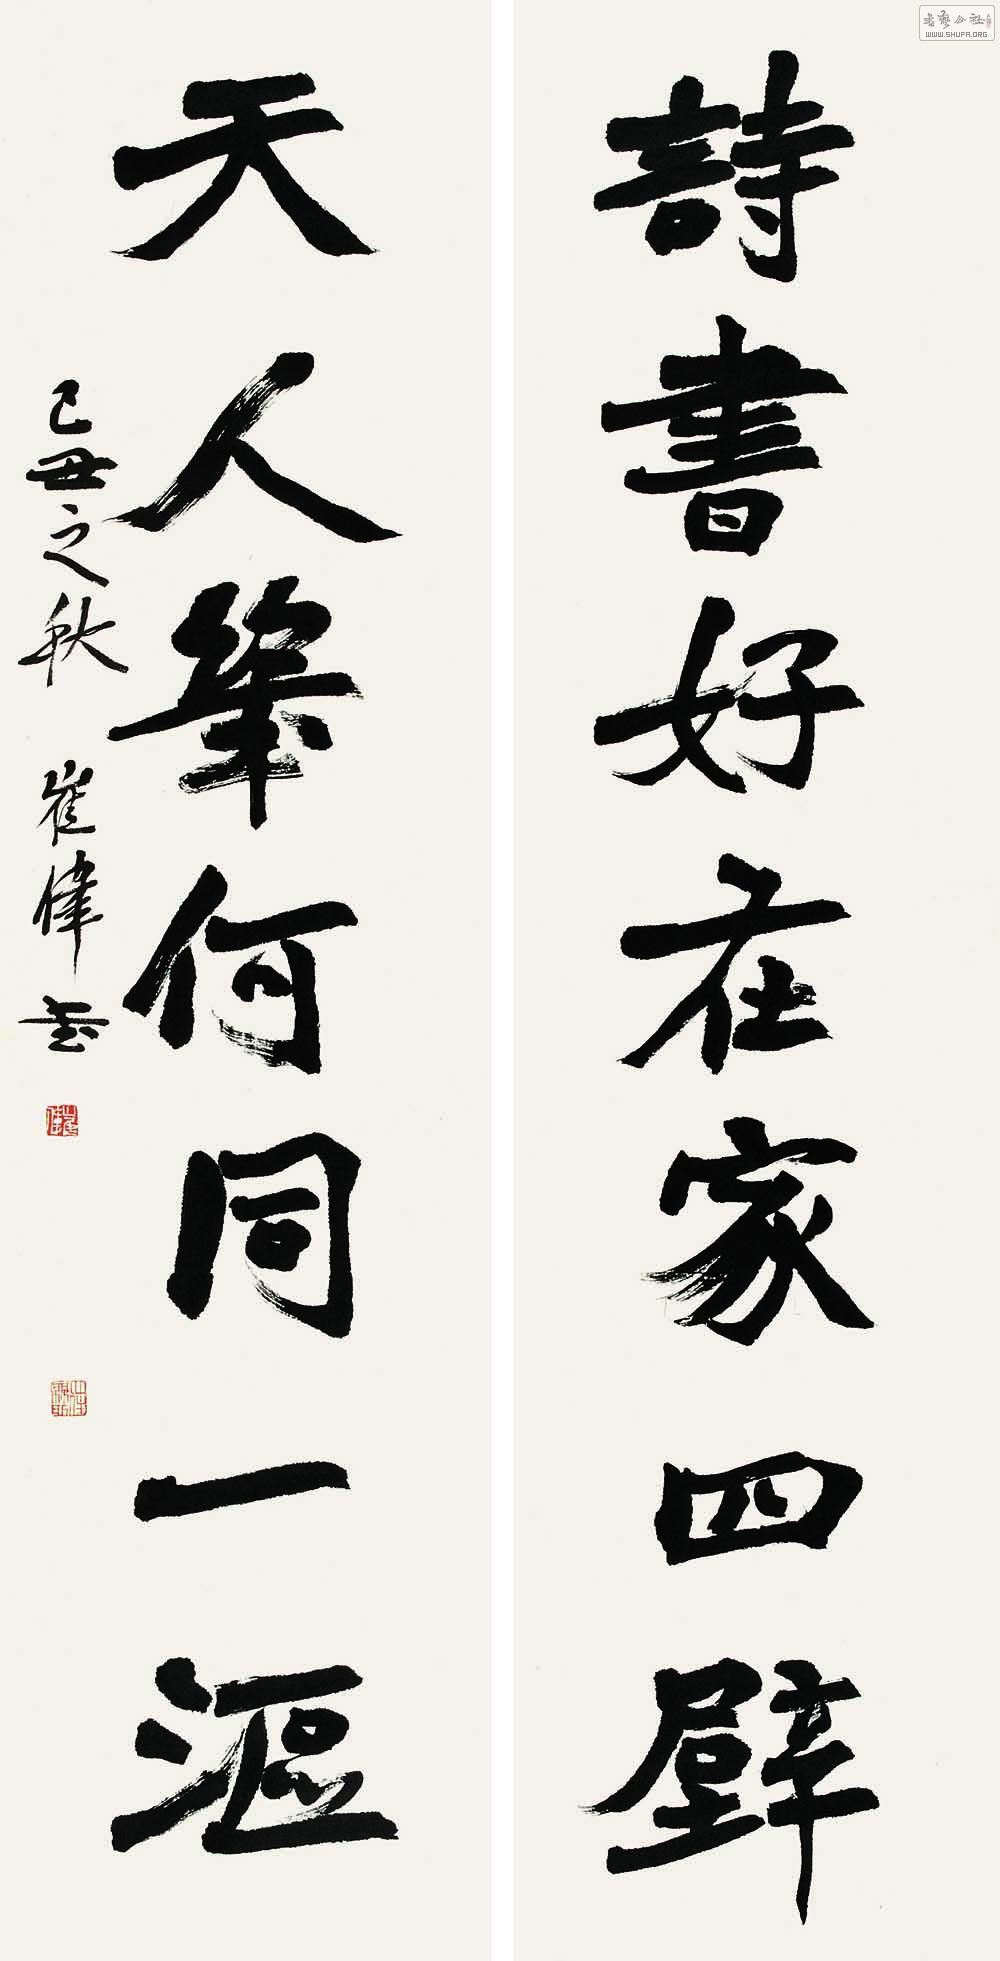 詩書好在家四壁
天人幾何同一漚
己丑之秋 崔偉書
崔偉
書藝公社
WWW.SHUFA.ORG